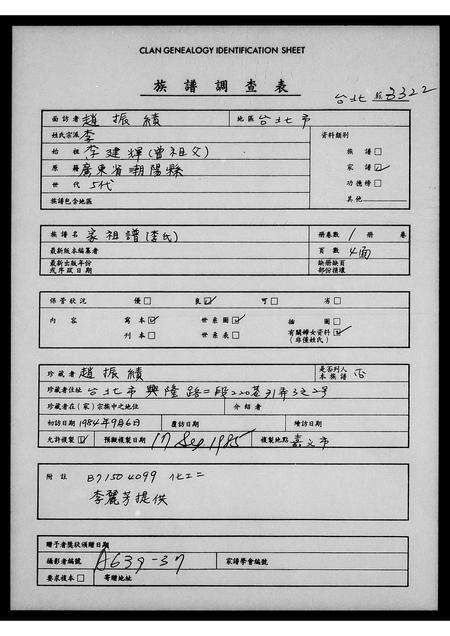 CLAN GENEALOGY IDENTIFICATION SHEET
族譜調查表
台北 3322
面訪者 趙振績 地區 台北市
姓氏宗派 李 資料類別
始祖 李建輝(曾祖父) 族譜□
原籍 廣東省潮陽縣 家譜☑
世代 5代 功德榜□
族譜包含地區 其他
族譜名 家祖譜(李氏) 冊卷數 1 冊 卷
最新版本編纂者 頁數 4面
最新出版年份或序跋日期 缺冊缺頁部份損壞
保管狀況 優□ 良☑ 可□ 劣□
內容 寫本☑ 世系圖☑ 插圖□
刊本□ 世系表□ 有關婦女資料☑(非僅姓氏)
珍藏者 趙振績 是否列入本族譜 否
珍藏者住址 台北市興隆路二段220巷31弄3之2号
珍藏者在(家)宗族中之地位 介紹者
初訪日期 1984年9月6日 覆訪日期 續訪日期
允許複製☑ 預擬複製日期 17 Sep 1985 複製地點 嘉义市
附註 B71504099 化工二
李麗芳提供
贈予者獎狀頒贈日期
攝影者編號 A639-37 家譜學會編號
要求複本□ 寄贈地址